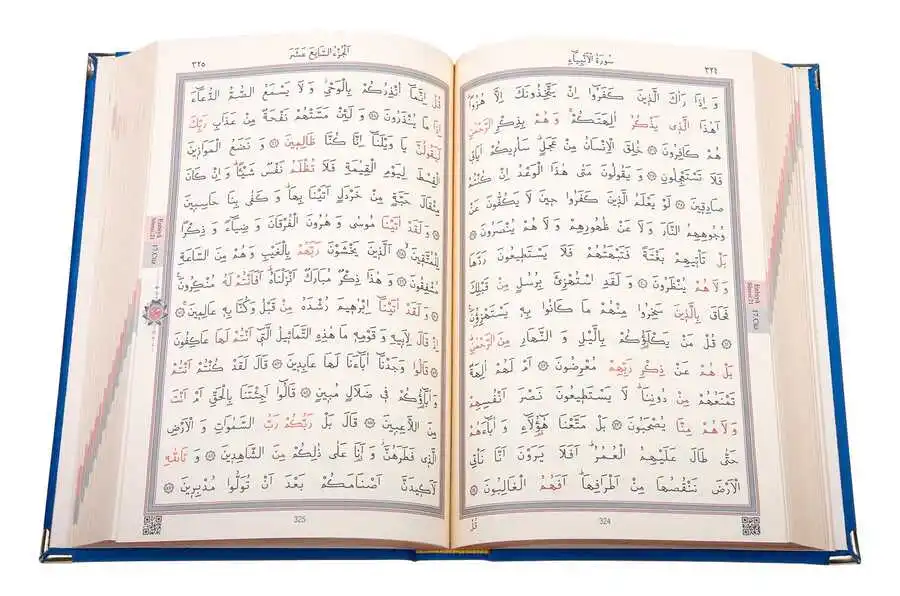 سُورَةُ الْاَنْبِيَاءِ
٣٢٤
وَ اِذَا رَاٰكَ الَّذ۪ينَ كَفَرُٓوا اِنْ يَتَّخِذُونَكَ اِلَّا هُزُوًا
اَهٰذَا الَّذ۪ي يَذْكُرُ اٰلِهَتَكُمْ وَ هُمْ بِذِكْرِ الرَّحْمٰنِ
هُمْ كَافِرُونَ خُلِقَ الْاِنْسَانُ مِنْ عَجَلٍ سَاُر۪يكُمْ اٰيَات۪ي
فَلَا تَسْتَعْجِلُونِ وَ يَقُولُونَ مَتٰى هٰذَا الْوَعْدُ اِنْ كُنْتُمْ
صَادِق۪ينَ لَوْ يَعْلَمُ الَّذ۪ينَ كَفَرُوا ح۪ينَ لَا يَكُفُّونَ عَنْ
وُجُوهِهِمُ النَّارَ وَ لَا عَنْ ظُهُورِهِمْ وَ لَا هُمْ يُنْصَرُونَ
بَلْ تَاْت۪يهِمْ بَغْتَةً فَتَبْهَتُهُمْ فَلَا يَسْتَط۪يعُونَ رَدَّهَا
وَ لَا هُمْ يُنْظَرُونَ وَ لَقَدِ اسْتُهْزِئَ بِرُسُلٍ مِنْ قَبْلِكَ
فَحَاقَ بِالَّذ۪ينَ سَخِرُوا مِنْهُمْ مَا كَانُوا بِه۪ يَسْتَهْزِؤُ۫نَ
قُلْ مَنْ يَكْلَؤُكُمْ بِالَّيْلِ وَ النَّهَارِ مِنَ الرَّحْمٰنِ
بَلْ هُمْ عَنْ ذِكْرِ رَبِّهِمْ مُعْرِضُونَ اَمْ لَهُمْ اٰلِهَةٌ
تَمْنَعُهُمْ مِنْ دُونِنَا لَا يَسْتَط۪يعُونَ نَصْرَ اَنْفُسِهِمْ
وَ لَا هُمْ مِنَّا يُصْحَبُونَ بَلْ مَتَّعْنَا هٰٓؤُ۬لَٓاءِ وَ اٰبَٓاءَهُمْ
حَتّٰى طَالَ عَلَيْهِمُ الْعُمُرُ اَفَلَا يَرَوْنَ اَنَّا نَاْتِي
الْاَرْضَ نَنْقُصُهَا مِنْ اَطْرَافِهَا اَفَهُمُ الْغَالِبُونَ
324
قُلْ
اَلْجُزْءُ السَّابِعَ عَشَرَ
٣٢٥
قُلْ اِنَّمَٓا اُنْذِرُكُمْ بِالْوَحْيِ وَ لَا يَسْمَعُ الصُّمُّ الدُّعَٓاءَ
اِذَا مَا يُنْذَرُونَ وَ لَئِنْ مَسَّتْهُمْ نَفْحَةٌ مِنْ عَذَابِ رَبِّكَ
لَيَقُولُنَّ يَا وَيْلَنَٓا اِنَّا كُنَّا ظَالِم۪ينَ وَ نَضَعُ الْمَوَاز۪ينَ
الْقِسْطَ لِيَوْمِ الْقِيٰمَةِ فَلَا تُظْلَمُ نَفْسٌ شَيْـًٔا وَ اِنْ كَانَ
مِثْقَالَ حَبَّةٍ مِنْ خَرْدَلٍ اَتَيْنَا بِهَا وَ كَفٰى بِنَا حَاسِب۪ينَ
وَ لَقَدْ اٰتَيْنَا مُوسٰى وَ هٰرُونَ الْفُرْقَانَ وَ ضِيَٓاءً وَ ذِكْرًا
لِلْمُتَّق۪ينَ اَلَّذ۪ينَ يَخْشَوْنَ رَبَّهُمْ بِالْغَيْبِ وَ هُمْ مِنَ السَّاعَةِ
مُشْفِقُونَ وَ هٰذَا ذِكْرٌ مُبَارَكٌ اَنْزَلْنَاهُ اَفَاَنْتُمْ لَهُ مُنْكِرُونَ
وَ لَقَدْ اٰتَيْنَٓا اِبْرٰه۪يمَ رُشْدَهُ مِنْ قَبْلُ وَ كُنَّا بِه۪ عَالِم۪ينَ
اِذْ قَالَ لِاَب۪يهِ وَ قَوْمِه۪ مَا هٰذِهِ التَّمَاث۪يلُ الَّت۪ٓي اَنْتُمْ لَهَا عَاكِفُونَ
قَالُوا وَجَدْنَٓا اٰبَٓاءَنَا لَهَا عَابِد۪ينَ قَالَ لَقَدْ كُنْتُمْ اَنْتُمْ
وَ اٰبَٓاؤُ۬كُمْ ف۪ي ضَلَالٍ مُب۪ينٍ قَالُٓوا اَجِئْتَنَا بِالْحَقِّ اَمْ اَنْتَ
مِنَ اللَّاعِب۪ينَ قَالَ بَلْ رَبُّكُمْ رَبُّ السَّمٰوَاتِ وَ الْاَرْضِ
الَّذ۪ي فَطَرَهُنَّ وَ اَنَا عَلٰى ذٰلِكُمْ مِنَ الشَّاهِد۪ينَ وَ تَاللّٰهِ
لَاَك۪يدَنَّ اَصْنَامَكُمْ بَعْدَ اَنْ تُوَلُّوا مُدْبِر۪ينَ
325